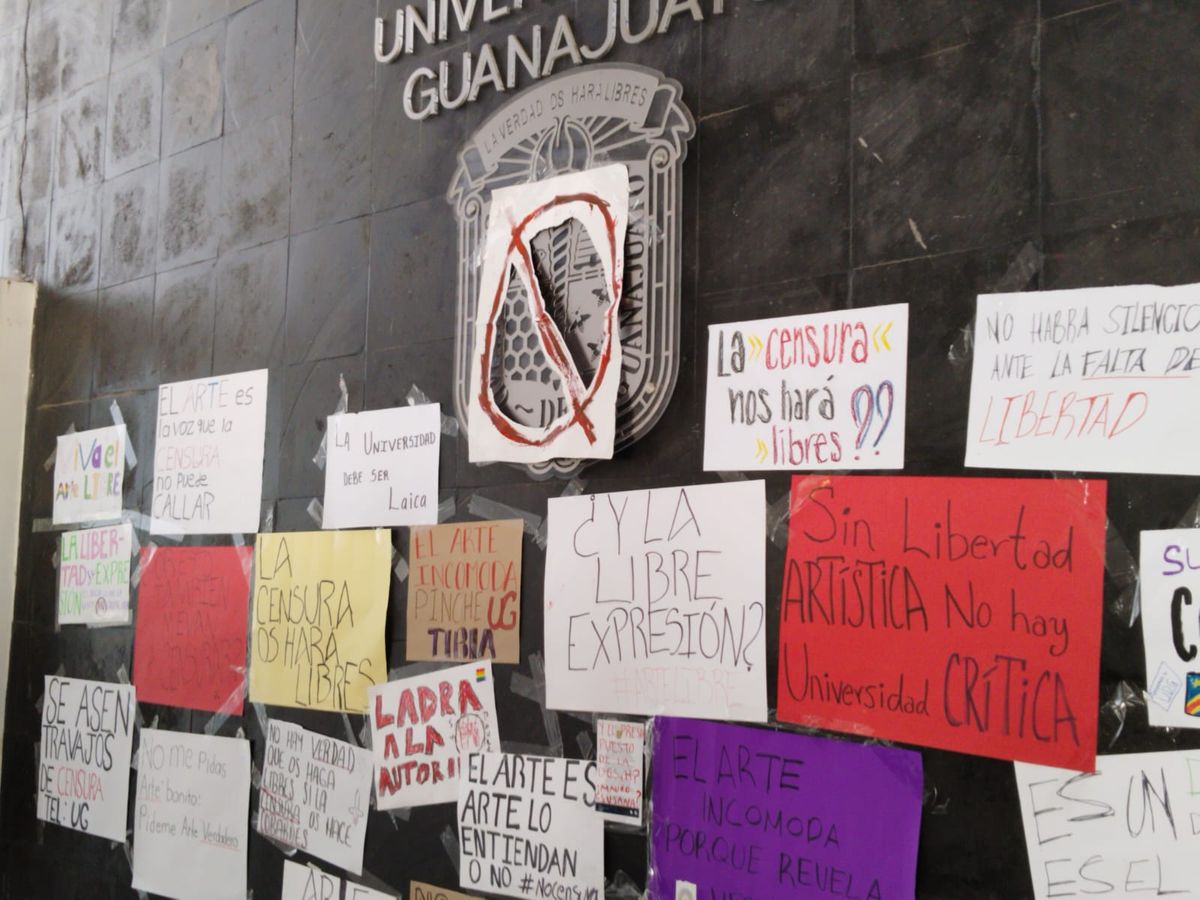 GUANAJUATO
LA VERDAD OS HARA LIBRES
GUANAJUATO
LA »censura«
nos hará
»libres ??
NO HABRA SILENCIO
ANTE LA FALTA DE
LIBERTAD
EL ARTE es
la voz que la
CENSURA
no puede
CALLAR
Viva el
Arte LIBRE
LA UNIVERSIDAD
DEBE SER
Laica
LA LIBER-
TAD EXPRE
SIÓN
LA
CENSURA
OS HARÁ
LIBRES
EL ARTE
INCOMODA
PINCHE UG
TIBIA
¿Y LA
LIBRE
EXPRESIÓN?
#ARTELIBRE
Sin Libertad
ARTÍSTICA No hay
Universidad CRÍTICA
SU
C
SE ASEN
TRAVAJOS
DE CENSURA
TEL: UG
No me Pidas
Arte bonito:
Pideme Arte Verdadero
NO HAY VERDAD
QUE OS HAGA
LIBRES SI LA
CENSURA OS HACE
COBARDES
LADRA
A LA
AUTORI
EL ARTE ES
ARTE LO
ENTIENDAN
O NO #NoCensura
EL ARTE
INCOMODA
PORQUE REVELA
ES UN
ES EL
ARTE
NO